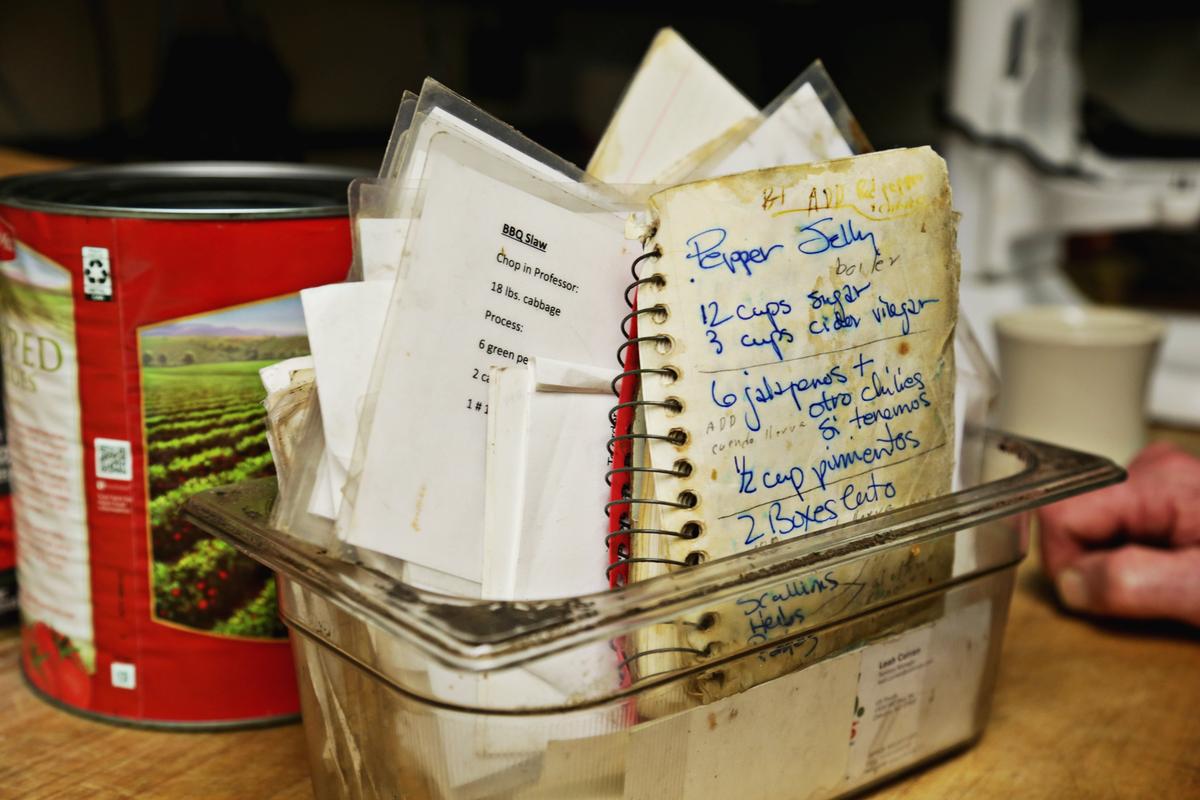 RED
BBQ Slaw
Chop in Professor:
18 lbs. cabbage
Process:
6 green pe
2 ca
1 # 1
ADD
Pepper Jelly
boiler
12 cups sugar
3 cups cider viegar
6 jalapenos +
otro chilies
ADD
cuando llueva
si tenemos
1/2 cup pimentos
2 Boxes
Scallions
Herbs
Leah Curran